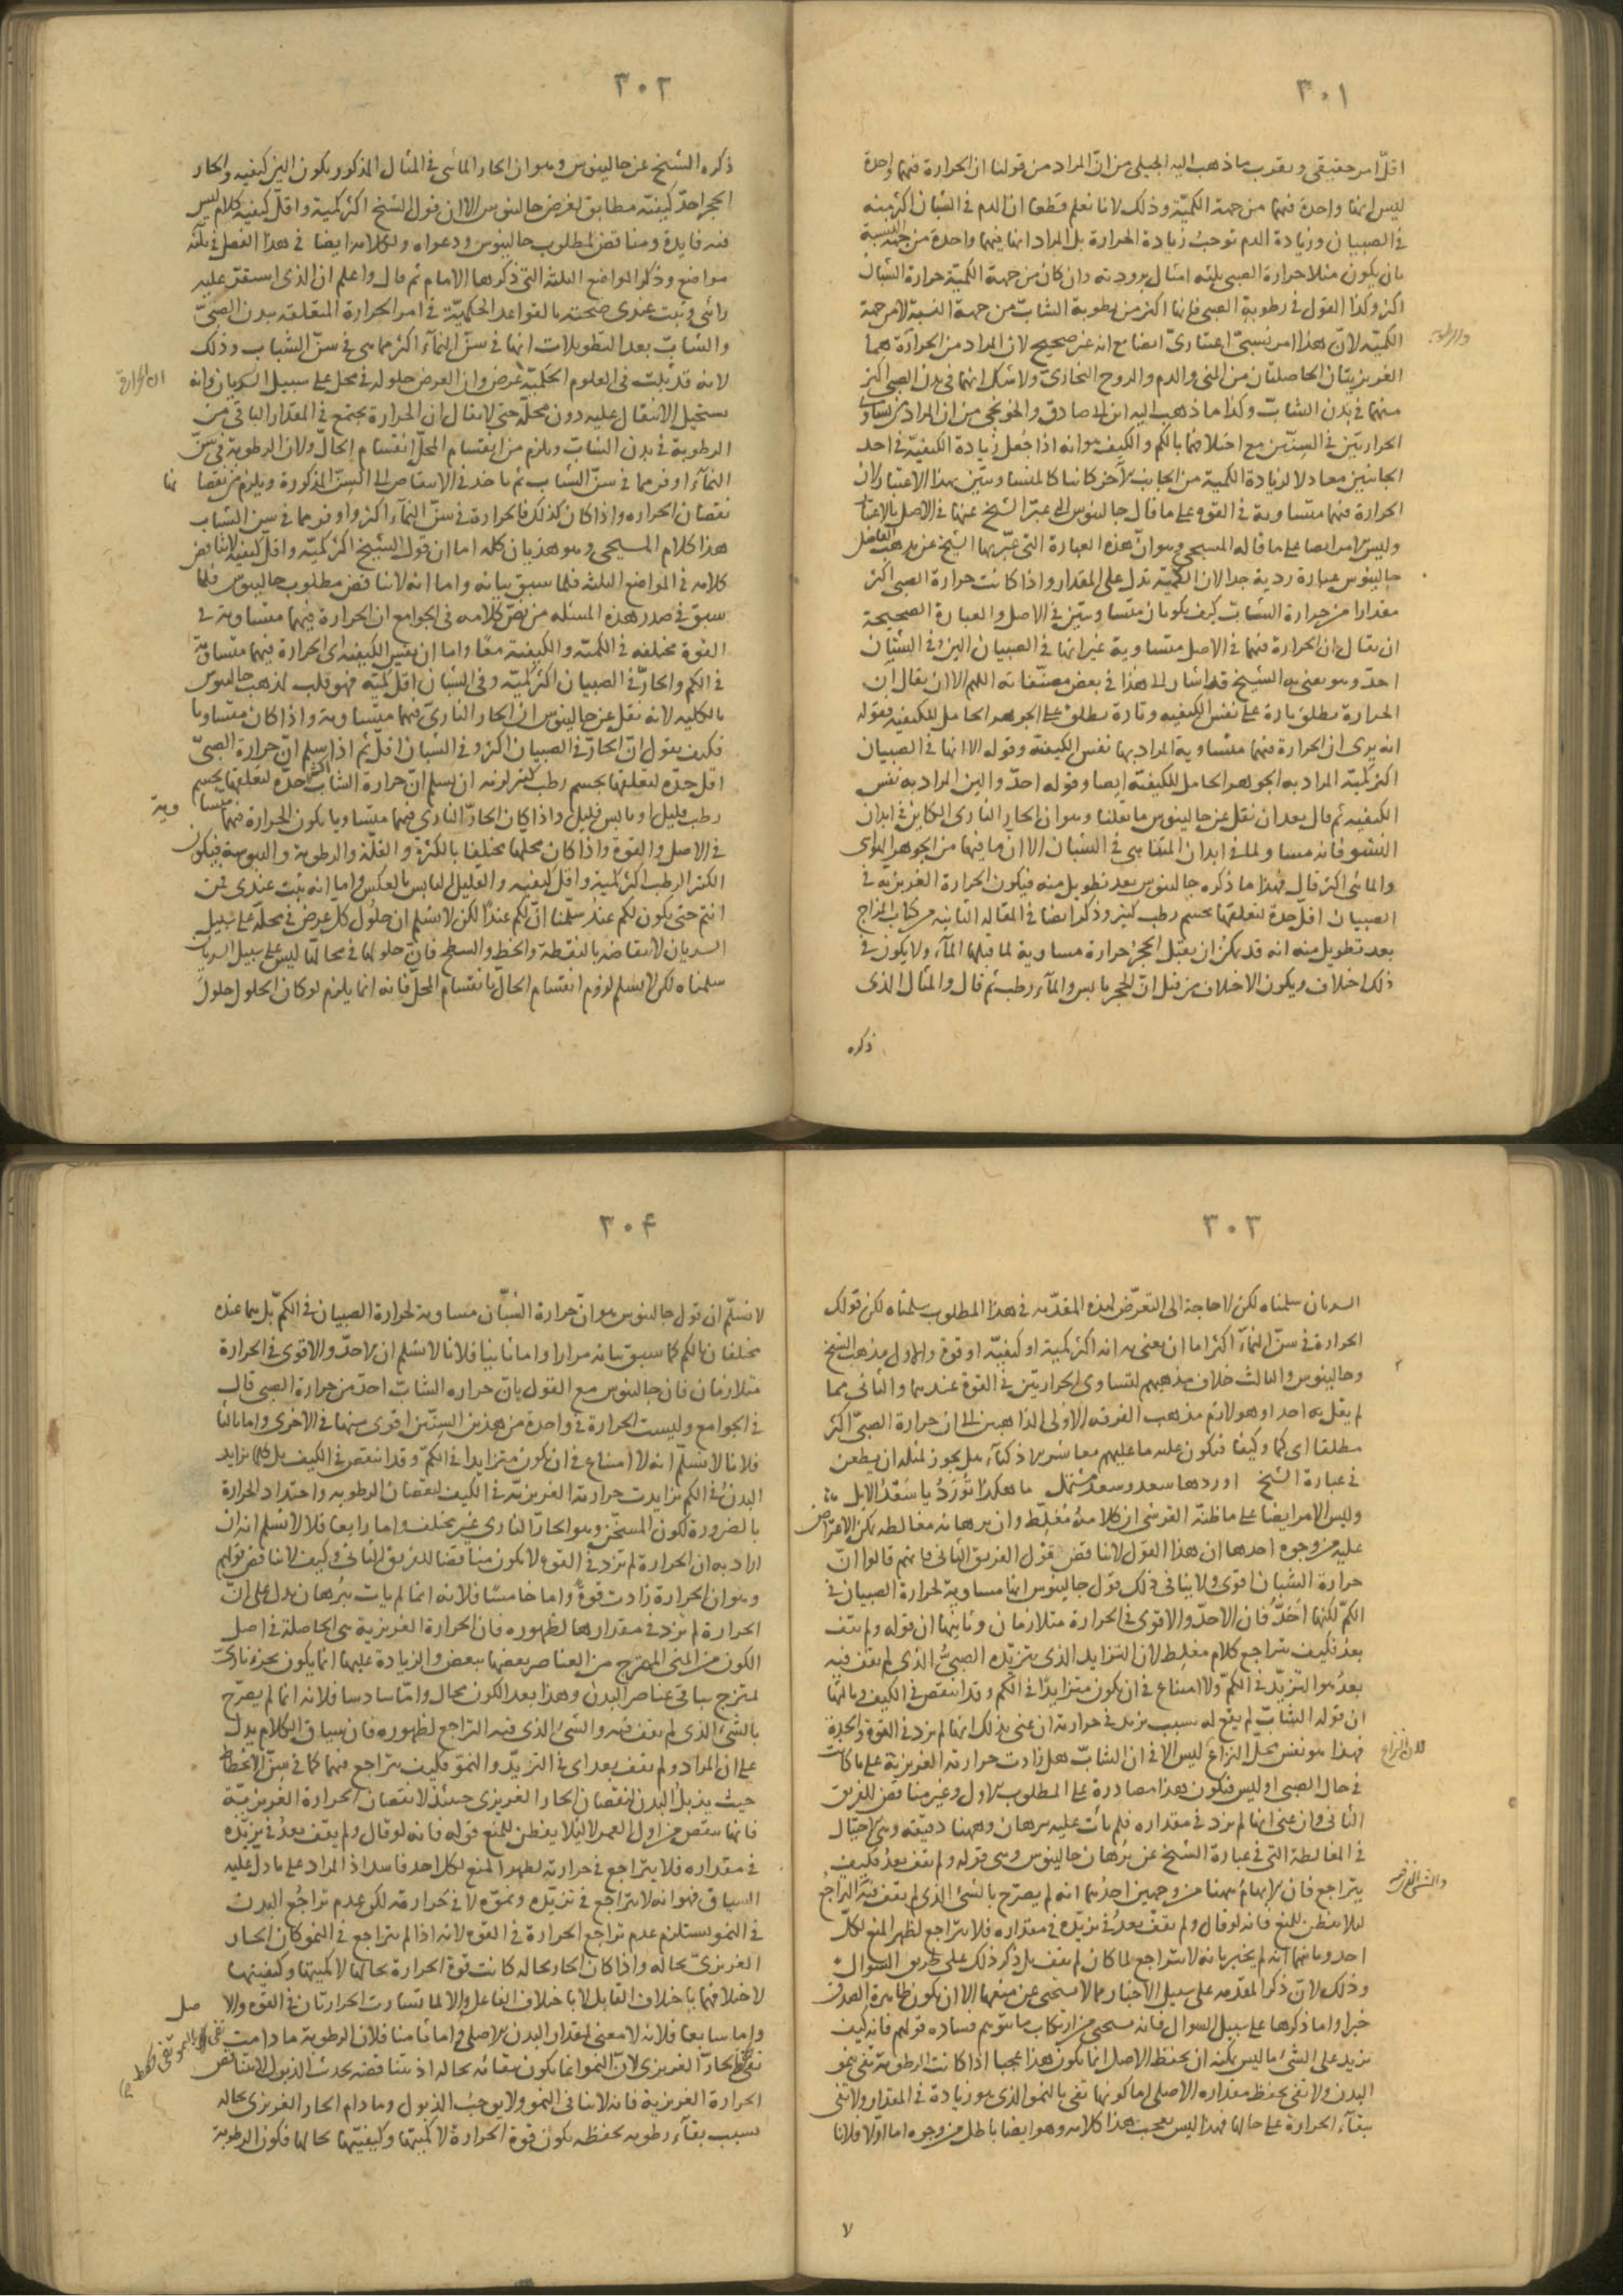 ٣٠١
اقل امر حقيقى ويقرب ما ذهب اليه الجيلى من ان المراد من قولنا ان الحرارة فيهما واحدة
ليس انها واحدة فيهما من جهة الكمية وذلك لانا نعلم قطعا ان الدم فى الشبان اكثر منه
فى الصبيان وزيادة الدم توجب زيادة الحرارة بل المراد انها فيهما واحدة من جهة النسبة
بان يكون مثلا حرارة الصبى ثلثه امثال برودته وان كان من جهة الكمية حرارة الشاب
اكثر وكذا القول فى رطوبة الصبى فانها اكثر من رطوبة الشاب من جهة النسبة لا من جهة
الكمية لان هذا امر نسبى اعتبارى ايضا مع انه غير صحيح لان المراد من الحرارة هما
والرطوبة
الغريزيتان الحاصلتان من المنى والدم والروح البخارى ولا شك انهما فى بدن الصبى اكثر
منهما فى بدن الشاب وكذا ما ذهب اليه ابن ابى صادق والخونجى من ان المراد من تساوى
الحرارتين فى السنين مع اختلافهما بالكم والكيف هو انه اذا جعل زيادة الكيفية فى احد
الجانبين معادلا لزيادة الكمية من الجانب الآخر كانتا كالمتساويتين بهذا الاعتبار وكان
الحرارة فيهما متساوية فى القوة على ما قال جالينوس التى عبر الشيخ عنها فى الاصل بالاعتبار
وليس الامر ايضا على ما قاله المسيحى وهو ان هذه العبارة التى عبر بها الشيخ عن مذهب الفاضل
جالينوس عبارة ردية جدا لان الكمية تدل على المقدار واذا كانت حرارة الصبى اكثر
مقدارا من حرارة الشاب كيف يكونان متساويتين فى الاصل والعبارة الصحيحة
ان يقال ان الحرارة فيهما فى الاصل متساوية غير انها فى الصبيان الين وفى الشبان
احد وهو يعنى به الشيخ قد اشار الى هذا فى بعض مصنفاته اللهم الا ان يقال ان
الحرارة تطلق تارة على نفس الكيفيه وتارة تطلق على الجوهر الحامل للكيفيه فقوله
انه يرى ان الحرارة فيهما متساوية المراد بها نفس الكيفية وقوله الا انها فى الصبيان
اكثر كمية المراد به الجوهر الحامل للكيفية ايضا وقوله احد والين المراد به نفس
الكيفيه ثم قال بعد ان نقل عن جالينوس ما نقلنا وهو ان الحار النارى الكاين فى ابدان
النشو فانه مساو لما فى ابدان المتناهى فى الشبان الا ان ما فيها من الجوهر الهوائى
والمائى اكثر قال فهذا ما ذكره جالينوس بعد تطويل منه فيكون الحرارة الغريزية فى
الصبيان اقل حدة لتعلقها بجسم رطب كثير وذكر ايضا فى المقالة الثانيه من كتاب المزاج
بعد تطويل منه انه قد يمكن ان يقبل الحجر حرارة مساوية لما قبلها الماء ولا يكون فى
ذلك اختلاف ويكون الاختلاف من قبل ان الحجر يابس والماء رطب ثم قال والمثال الذى
ذكره
٣٠٢
ذكره الشيخ عن جالينوس وهو ان الحار المائى فى المثال المذكور يكون الين كيفيه والحار
الحجر احد كيفية مطابق لغرض جالينوس الا ان قول الشيخ اكثر كمية واقل كيفية كلام ليس
فيه فايدة ومناقض لمطلوب جالينوس ودعواه ولكلامه ايضا فى هذا الفصل فى ثلثة
مواضع وذكر المواضع الثلثة التى ذكرها الامام ثم قال واعلم ان الذى استقر عليه
رائى وثبت عندى صحته بالقواعد الحكمية فى امر الحرارة المتعلقة ببدن الصبى
والشاب بعد التطويلات انها فى سن النماء اكثر مما هى فى سن الشباب وذلك
لانه قد ثبت فى العلوم الحكمية عرض وان العرض حلوله فى محل على سبيل السريان وانه
ان الحرارة
يستحيل الانتقال عليه دون محله حتى لا يقال ان الحرارة يجتمع فى المقدار الباقى من
الرطوبة فى بدن الشاب ويلزم من انقسام المحل انقسام الحال ولان الرطوبة فى سن
النماء اوفر مما فى سن الشباب ثم ياخذ فى الانتقاص الى السن المذكورة ويلزم من نقصانها
نقصان الحرارة واذا كان كذلك فالحرارة فى سن النماء اكثر واوفر مما فى سن الشباب
هذا كلام المسيحى وهو هذيان كله اما ان قول الشيخ اكثر كمية واقل كيفية لا يناقض
كلامه فى المواضع الثلثة فلما سبق بيانه واما انه لا يناقض مطلوب جالينوس فلما
سبق فى صدر هذه المسئله من نص كلامه فى الجوامع ان الحرارة فيهما متساوية فى
القوة مختلفة فى الكمية والكيفية معا واما ان يفسر الكيفية اى الحرارة فيهما متساوية
فى الكم والحار فى الصبيان اكثر كمية وفى الشبان اقل كمية فهو قلب لمذهب جالينوس
بالكليه لانه نقل عن جالينوس ان الحار النارى فيهما متساوية واذا كان متساويا
فكيف يقول ان الحار فى الصبيان اكثر وفى الشبان اقل ثم اذا سلم ان حرارة الصبى
اقل حدة لتعلقها بجسم رطب كثير لزمه ان يسلم ان حرارة الشاب اكثر حدة لتعلقها بجسم
رطب قليل او يابس قليل واذا كان الحار النارى فيهما متساويا يكون الحرارة فيهما متساوية
فى الاصل والقوة واذا كان محلهما مختلفا بالكثرة والقلة والرطوبة واليبوسة فيكون
الكثير الرطب اكثر كمية واقل كيفيه والقليل اليابس بالعكس واما انه ثبت عندى فمن
انتم حتى يكون لكم عند سلمنا ان لكم عندًا لكن لا نسلم ان حلول كل عرض فى محله على سبيل
السريان لانتقاضه بالنقطة والخط والسطح فان حلولها فى محالها ليس على سبيل السريان
سلمناه لكن لا نسلم لزوم انقسام الحال بانقسام المحل فانه انما يلزم لو كان الحلول حلول
٣٠٣
السريان سلمناه لكن لا حاجة الى التعرض لهذه المقدمه فى هذا المطلوب سلمناه لكن قولك
الحرارة فى سن النماء اكثر اما ان يعنى به انه اكثر كمية او كيفية او قوة والاول مذهب الشيخ
وجالينوس والثالث خلاف مذهبهم لتساوى الحرارتين فى القوة عندهما والثانى مما
لم يقل به احد اوهو لازم مذهب الفرقه الاولى الذاهبين الى ان حرارة الصبى اكثر
مطلقا اى كما وكيفا فيكون عليه ما عليهم معاشر الاذكياء هل يجوز لمثله ان يطعن
فى عبارة الشيخ اوردها سعد وسعد مشتمل ما هكذا تورد يا سعد الابل
وليس الامر ايضا على ما ظنه القرشى ان كلامه مغلط وان برهانه مغالطه يمكن الاعتراض
عليه من وجوه احدها ان هذا القول لا يناقض قول الفريق الثانى فانهم قالوا ان
حرارة الشبان اقوى ولا ينافى ذلك قول جالينوس انها مساوية لحرارة الصبيان فى
الكم لكنها احد فان الاحد والاقوى فى الحرارة متلازمان وثانيها ان قوله ولم يقف
بعد فكيف يتراجع كلام مغلط لان التزايد الذى يتزيده الصبى الذى لم يقف فيه
بعد هو التزيد فى الكم ولا امتناع فى ان يكون متزايدا فى الكم وقد انتقص فى الكيف وثالثها
ان قوله الشاب لم يقع له سبب يزيد فى حرارته ان عنى بذلك انها لم تزد فى القوة والحدة
فهذا هو نفس محل النزاع ليس الا فى ان الشاب هل زادت حرارته الغريزية على ما كانت
لان النزاع
فى حال الصبى او ليس فيكون هذا مصادرة على المطلوب الاول وغير مناقض للفريق
الثانى وان عنى انها لم تزد فى مقداره فلم يأت عليه ببرهان وههنا دقيقة وهى الاحتيال
فى المغالطة التى فى عبارة الشيخ عن برهان جالينوس وهى قوله ولم يقف بعد فكيف
يتراجع فان الابهام ههنا من وجهين احدهما انه لم يصرح بالشئ الذى لم يقف فيه التراجع
والشئ الذى فيه
لئلا يتفطن للمنع فانه لو قال ولم يقف بعد فى تزيده فى مقداره فلا يتراجع لظهر المنع لكل
احد وثانيهما انه لم يخبر بانه لا يتراجع لما كان لم يقف بل ذكر ذلك على طريق السؤال
وذلك لان ذكر المقدمه على سبيل الاخبار مما لا يستحيى عن منعها الا ان يكون ظاهرة الصدق
خبرا واما ذكرها على سبيل السوال فانه يستحيى من ارتكاب ما يتوهم فساده قولهم فانه كيف
يزيد على الشئ ما ليس يمكنه ان يحفظ الاصل انما يكون هذا عجيبا اذا كانت الرطوبة تفى بنمو
البدن ولا تفى بحفظ مقداره الاصلى اما كونها تفى بالنمو الذى هو زيادة فى المقدار ولا تفى
ببقاء الحرارة على حالها فهذا ليس بعجب هذا كلامه وهو ايضا باطل من وجوه اما اولا فلانا
لا
٣٠۴
لا نسلم ان قول جالينوس هو ان حرارة الشبان مساوية لحرارة الصبيان فى الكم بل هما عنده
مختلفان بالكم كما سبق بيانه مرارا واما ثانيا فلانا لا نسلم ان الاحد والاقوى فى الحرارة
متلازمان فان جالينوس مع القول بان حرارة الشاب احد من حرارة الصبى قال
فى الجوامع وليست الحرارة فى واحدة من هذين السنين اقوى منها فى الاخرى واما ثالثا
فلانا لا نسلم انه لا امتناع فى ان يكون متزايدا فى الكم وقد انتقص فى الكيف بل كلما تزايد
البدن فى الكم تزايدت حرارته الغريزية فى الكيف لنقصان الرطوبه واحتداد الحرارة
بالضرورة لكون المسخن وهو الحار النارى غير مختلف واما رابعا فلا لا نسلم انه ان
اراد به ان الحرارة لم تزد فى القوة لا يكون مناقضا للفريق الثانى وكيف لا يناقض قولهم
وهو ان الحرارة زادت قوة واما خامسا فلانه انما لم يات ببرهان يدل على ان
الحرارة لم تزد فى مقدارها لظهوره فان الحرارة الغريزية هى الحاصلة فى اصل
الكون من المنى الممتزج من العناصر بعضها ببعض والزيادة عليها انما يكون بجزء نارى
لممتزج بباقى عناصر البدن وهذا بعد الكون محال واما سادسا فلانه انما لم يصرح
بالشئ الذى لم يقف فيه والشئ الذى فيه التراجع لظهوره فان سياق الكلام يدل
على ان المراد ولم يقف بعد اى فى التزيد والنمو فكيف يتراجع فيهما كما فى سن الانحطاط
حيث يذبل البدن لنقصان الحار الغريزى حينئذ لا نقصان الحرارة الغريزية
فانها تنتقص من اول العمر لا لئلا يفطن للمنع قوله فانه لو قال ولم يقف بعد فى تزيده
فى مقداره فلا يتراجع فى حرارته لظهر المنع لكل احد فاسد اذ المراد على ما دل عليه
السياق فهو انه لا يتراجع فى تزيده ونموه لا فى حرارته لكن عدم تراجع البدن
فى النمو يستلزم عدم تراجع الحرارة فى القوة لانه اذا لم يتراجع فى النمو كان الحار
الغريزى بحاله واذا كان الحار بحاله كانت قوة الحرارة بحالها لا كميتها وكيفيتها
لاختلافهما باختلاف القابل لا باختلاف الفاعل والا لما تساوت الحرارتان فى القوة والاصل
واما سابعا فلانه لا معنى لمقدار البدن الاصلى واما ثامنا فلان الرطوبة ما دامت
تفى بحفظ الحار الغريزى لان النمو انما يكون ببقائه بحاله اذ بتناقصه يحدث الذبول لا بتناقص
الحرارة الغريزية فانه لا ينافى النمو ولا يوجب الذبول وما دام الحار الغريزى بحاله
بسبب بقاء رطوبه تحفظه يكون قوة الحرارة لا كميتها وكيفيتها بحالها فكون الرطوبة